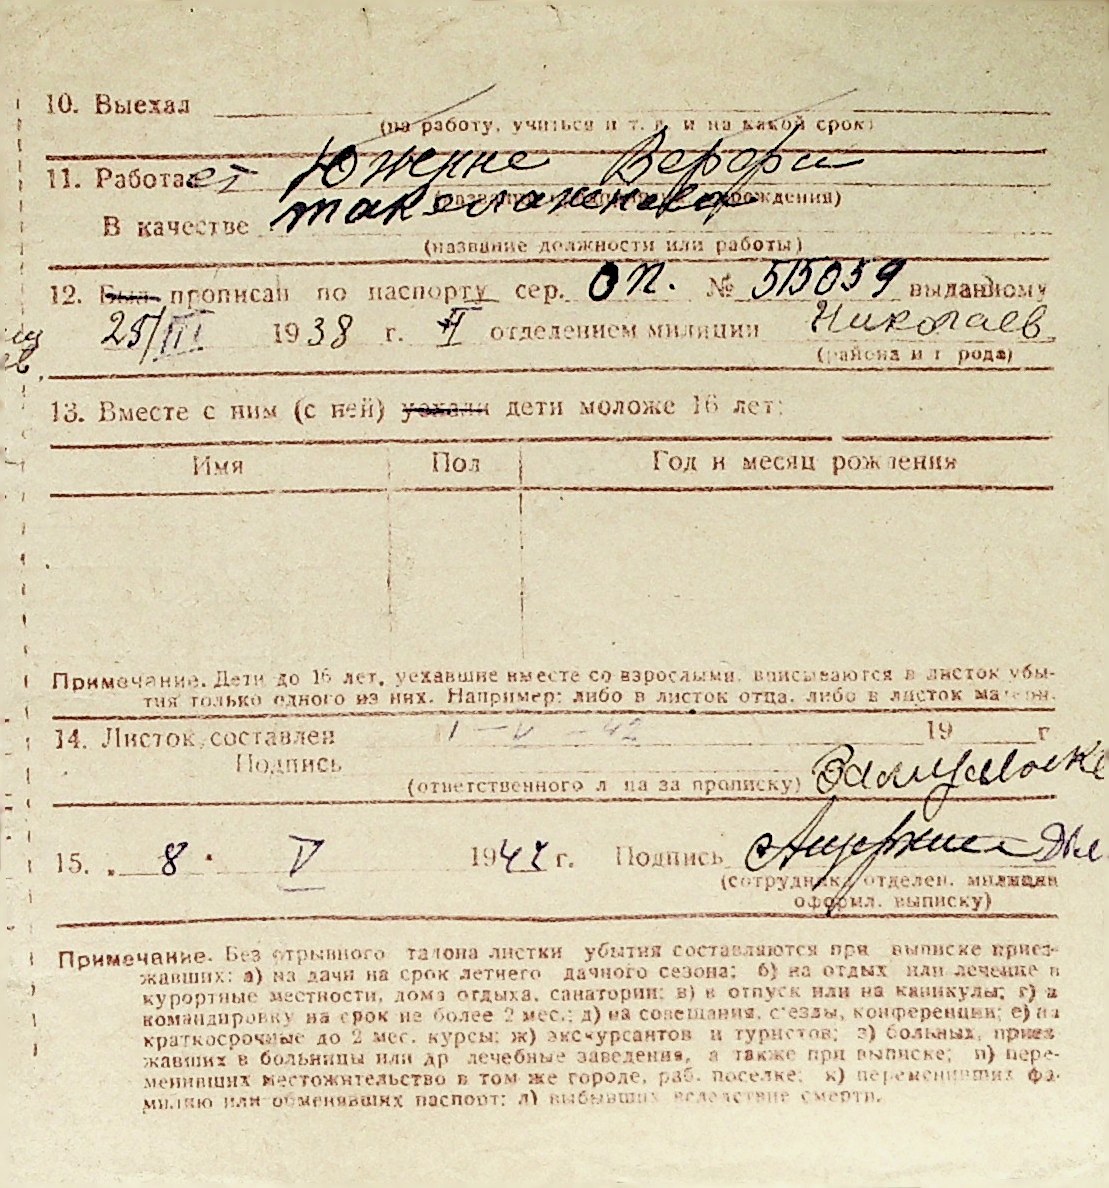 10. Выехал
(на работу, учиться и т. д. и на какой срок)
11. Работает Южные Верфи
(название учреждения)
В качестве такелажника
(название должности или работы)
12. Был прописан по паспорту сер. ОП. № 515059 выданному
25/III 1938 г. II отделением милиции Николаев
(района и города)
13. Вместе с ним (с ней) уехали дети моложе 16 лет:
Имя Пол Год и месяц рождения
Примечание. Дети до 16 лет, уехавшие вместе со взрослыми, вписываются в листок убы-
тия только одного из них. Например: либо в листок отца, либо в листок матери.
14. Листок составлен 19 г
Подпись
(ответственного лица за прописку)
15. 8 V 194 г. Подпись
(сотрудник. отделен. милиции
оформл. выписку)
Примечание. Без отрывного талона листки убытия составляются при выписке приез-
жавших: а) на дачи на срок летнего дачного сезона; б) на отдых или лечение в
курортные местности, дома отдыха, санатории; в) в отпуск или на каникулы; г) в
командировку на срок не более 2 мес.; д) на совещания, с'езды, конференции; е) на
краткосрочные до 2 мес. курсы; ж) экскурсантов и туристов; з) больных, приез
жавших в больницы или др лечебные заведения, а также при выписке; и) пере-
менивших местожительство в том же городе, раб. поселке; к) переменивших фа-
милию или обменявших паспорт; л) выбывших вследствие смерти.